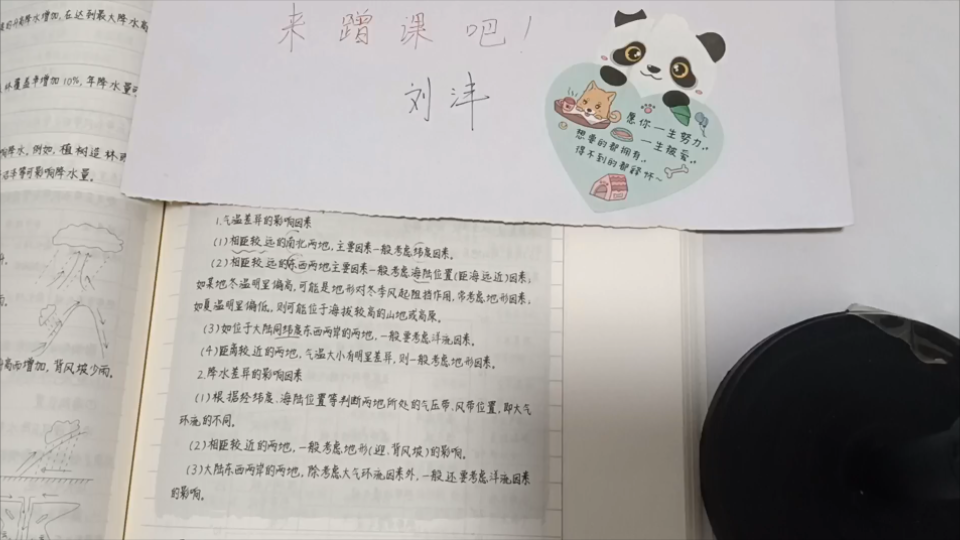 来蹭课吧！
刘沣
愿你一生努力
一生被爱
想要的都拥有
得不到的都释怀~
降水增加,在达到最大降水高
环覆盖率增加10%,年降水量
响降水。例如,植树造林
等可影响降水量。
高而增加,背风坡少雨。
1.气温差异的影响因素
(1)相距较远的南北两地,主要因素一般考虑纬度因素。
(2)相距较远的东西两地主要因素一般考虑海陆位置(距海远近)因素;
如某地冬温明显偏高,可能是地形对冬季风起阻挡作用,常考虑地形因素;
如夏温明显偏低,则可能位于海拔较高的山地或高原。
(3)如位于大陆同纬度东西两岸的两地,一般要考虑洋流因素。
(4)距离较近的两地,气温大小有明显差异,则一般考虑地形因素。
2.降水差异的影响因素
(1)根据经纬度、海陆位置等判断两地所处的气压带、风带位置,即大气
环流的不同。
(2)相距较近的两地,一般考虑地形(迎、背风坡)的影响。
(3)大陆东西两岸的两地,除考虑大气环流因素外,一般还要考虑洋流因素
的影响。